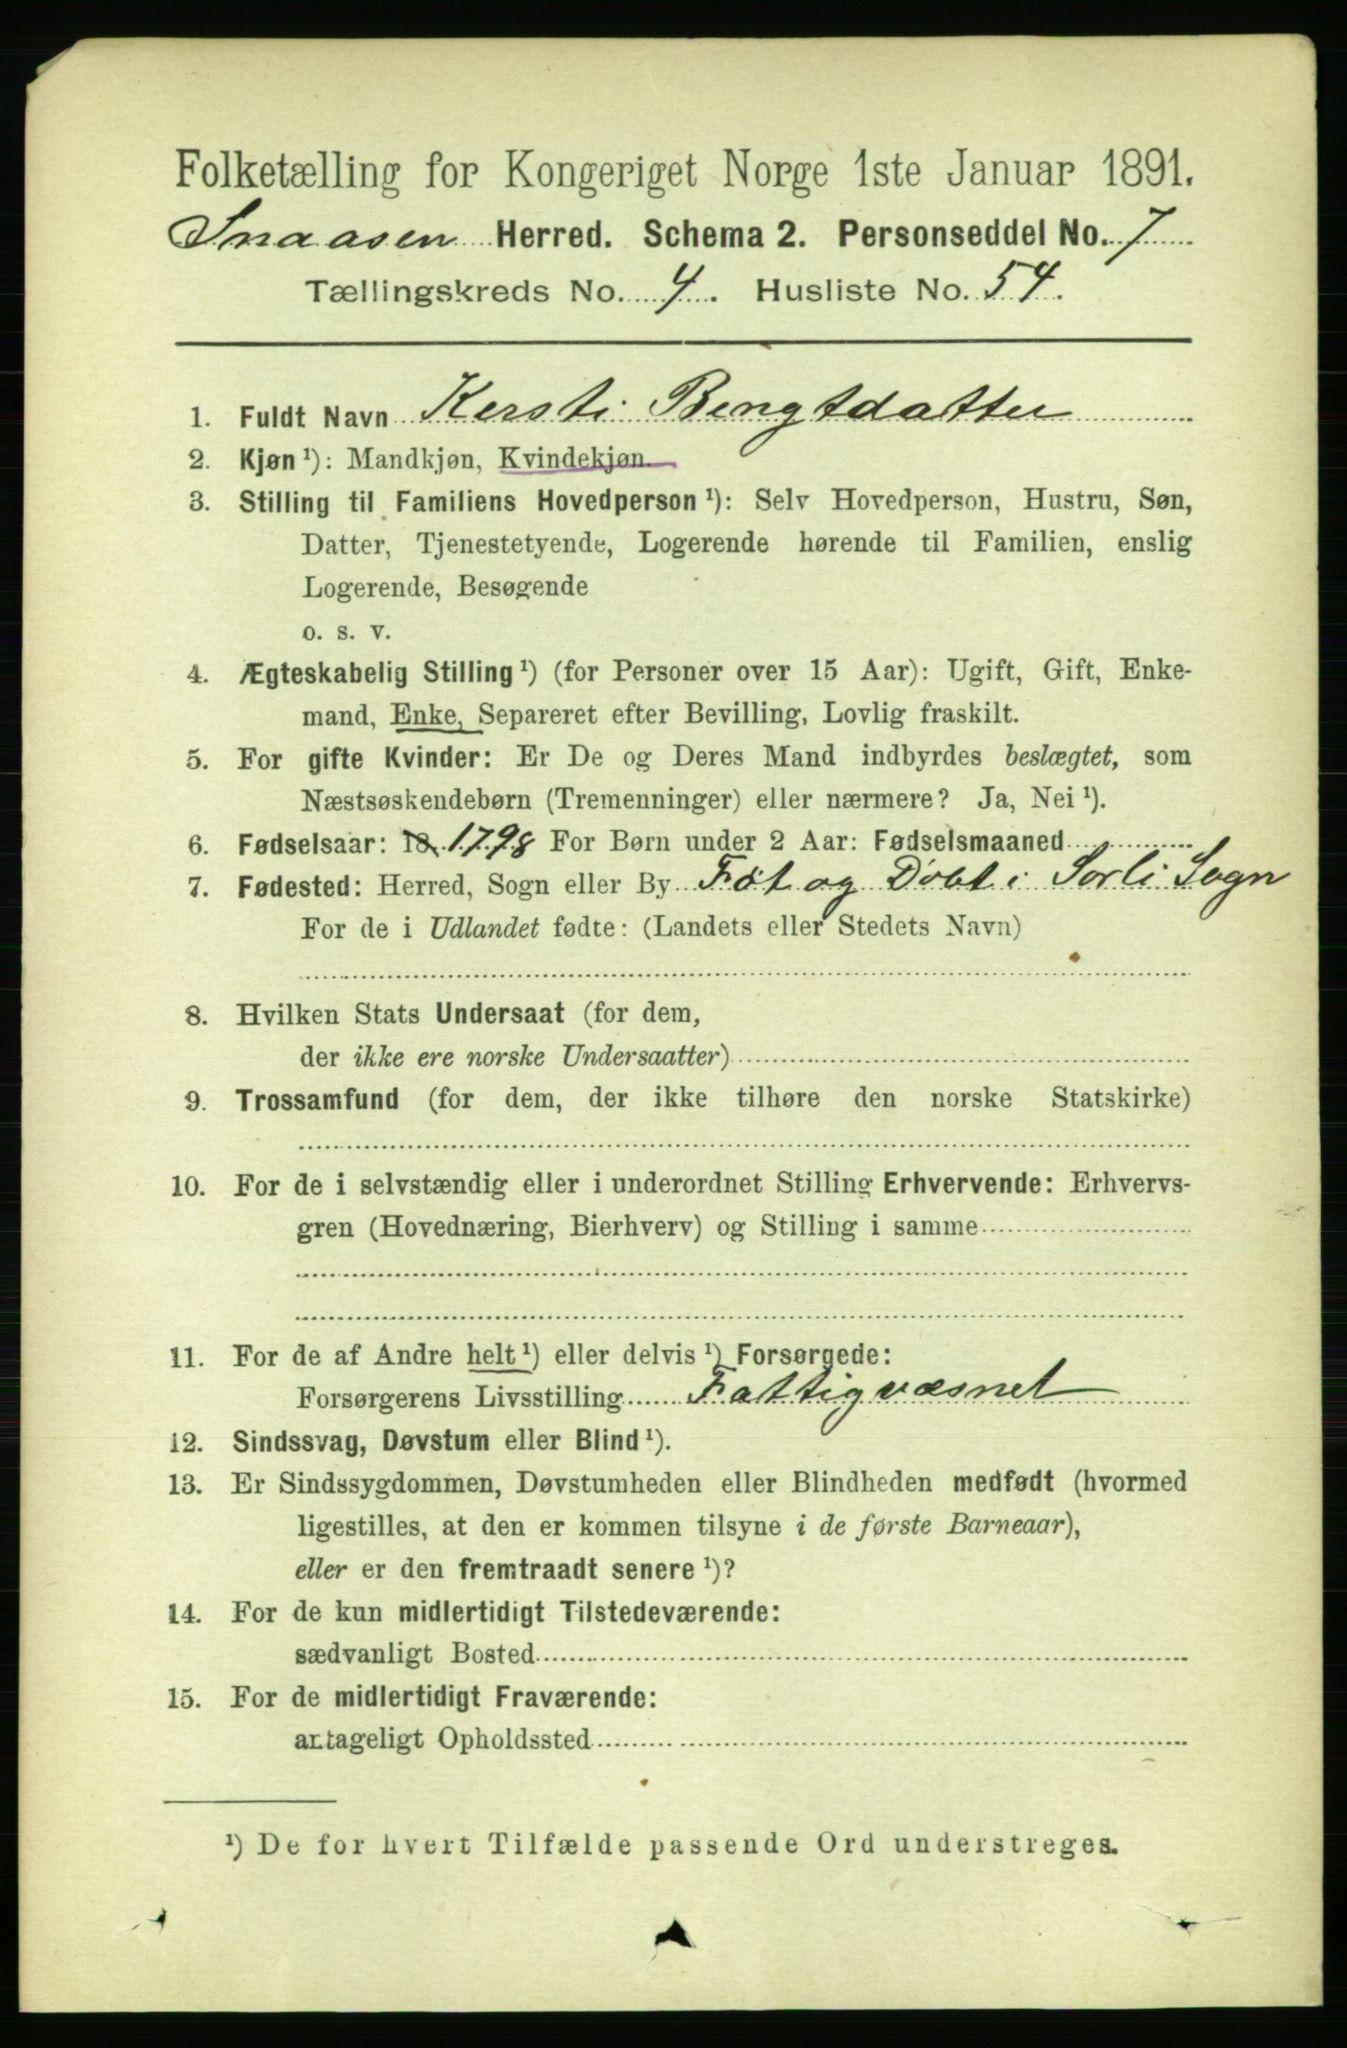 Folketælling for Kongeriget Norge 1ste Januar 1891.
Snaasen Herred. Schema 2. Personseddel No. 7
Tællingskreds No. 4. Husliste No. 54.
1. Fuldt Navn Kersti Bengtdatter
2. Kjøn ¹): Mandkjøn, Kvindekjøn.
3. Stilling til Familiens Hovedperson ¹): Selv Hovedperson, Hustru, Søn,
Datter, Tjenestetyende, Logerende hørende til Familien, enslig
Logerende, Besøgende
o. s. v.
4. Ægteskabelig Stilling ¹) (for Personer over 15 Aar): Ugift, Gift, Enke-
mand, Enke, Separeret efter Bevilling, Lovlig fraskilt.
5. For gifte Kvinder: Er De og Deres Mand indbyrdes beslægtet, som
Næstsøskendebørn (Tremenninger) eller nærmere? Ja, Nei ¹).
6. Fødselsaar: 18 1798 For Børn under 2 Aar: Fødselsmaaned
7. Fødested: Herred, Sogn eller By Föt og Döbt i Sorli Sogn
For de i Udlandet fødte: (Landets eller Stedets Navn)
8. Hvilken Stats Undersaat (for dem,
der ikke ere norske Undersaatter)
9. Trossamfund (for dem, der ikke tilhøre den norske Statskirke)
10. For de i selvstændig eller i underordnet Stilling Erhvervende: Erhvervs-
gren (Hovednæring, Bierhverv) og Stilling i samme
11. For de af Andre helt ¹) eller delvis ¹) Forsørgede:
Forsørgerens Livsstilling Fattigvæsnet
12. Sindssvag, Døvstum eller Blind ¹).
13. Er Sindssygdommen, Døvstumheden eller Blindheden medfødt (hvormed
ligestilles, at den er kommen tilsyne i de første Barneaar),
eller er den fremtraadt senere ¹)?
14. For de kun midlertidigt Tilstedeværende:
sædvanligt Bosted
15. For de midlertidigt Fraværende:
antageligt Opholdssted
¹) De for hvert Tilfælde passende Ord understreges.